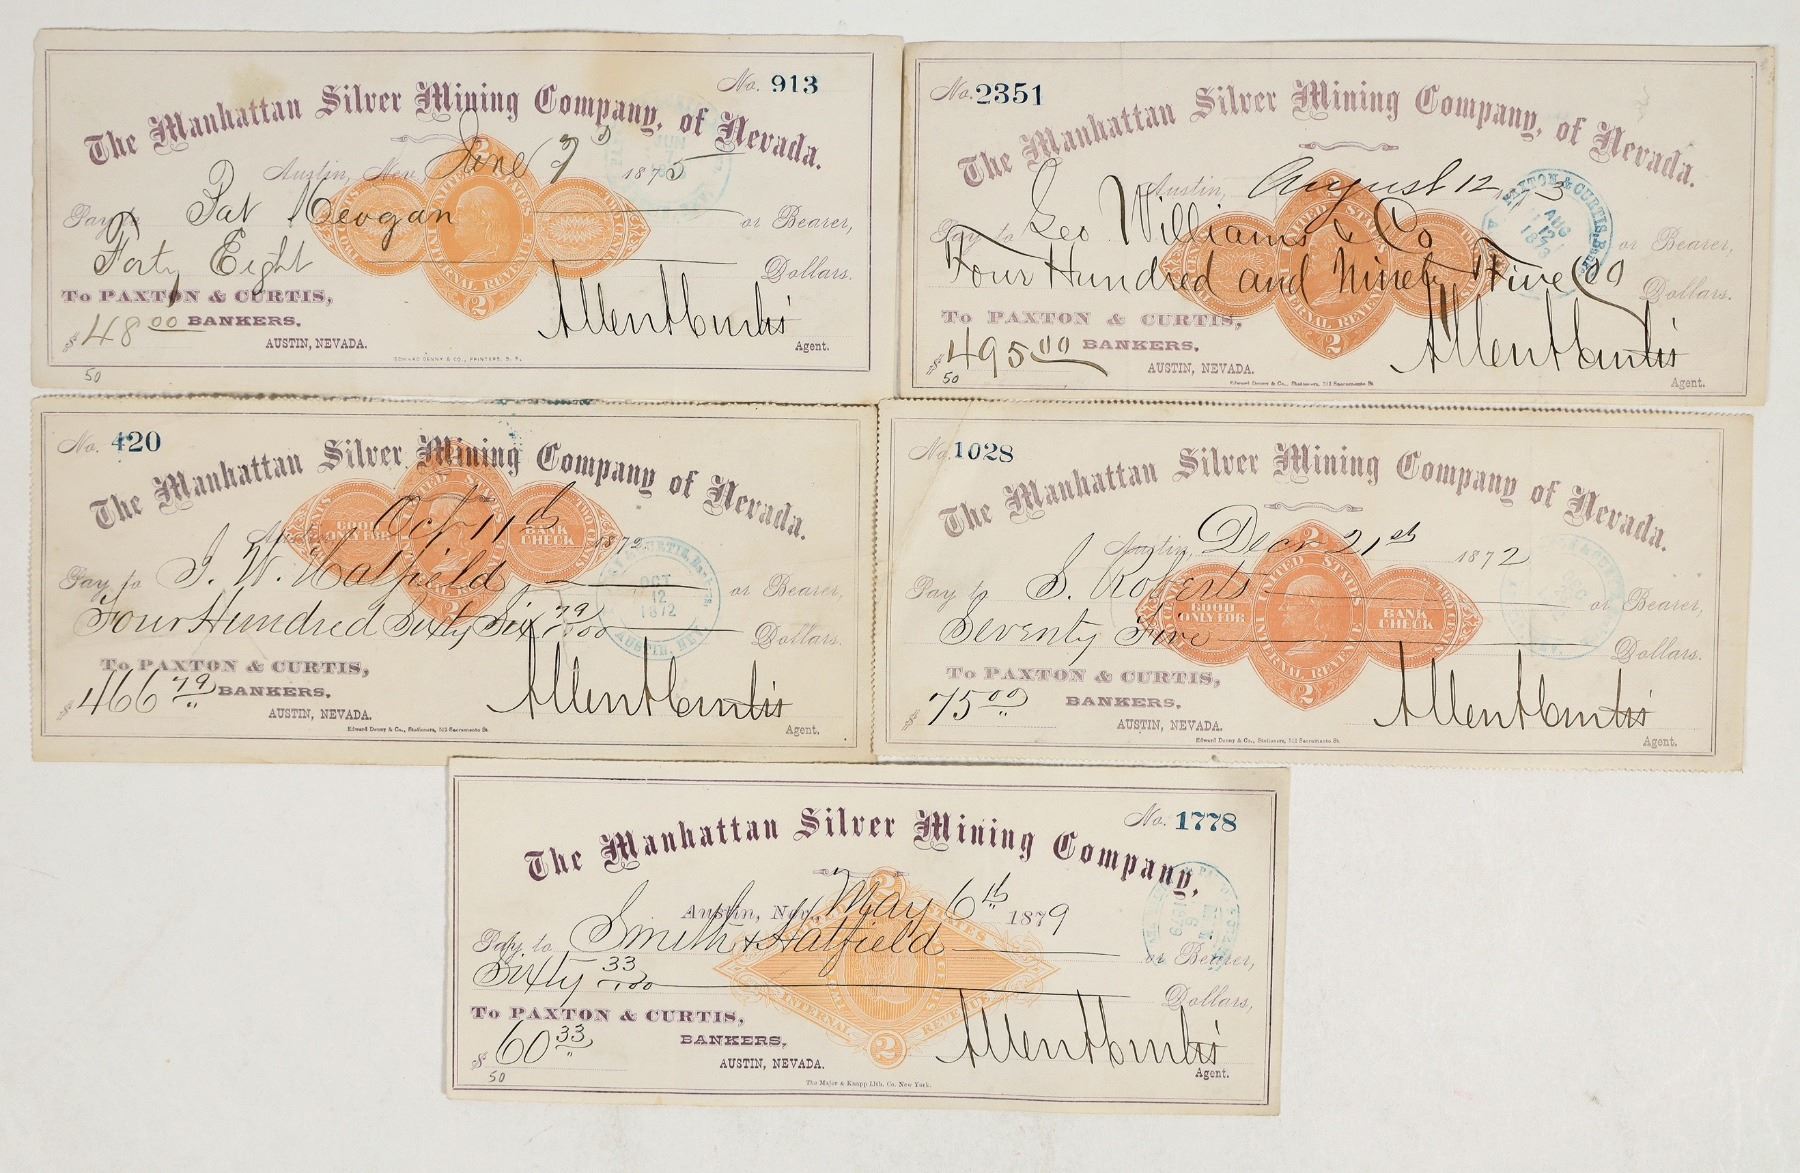 No. 913
The Manhattan Silver Mining Company, of Nevada.
Austin, Nev. June 7th 1875
Pay to Pat Keogan or Bearer,
Forty Eight Dollars.
To PAXTON & CURTIS,
BANKERS,
$48 00
AUSTIN, NEVADA.
Allen A Curtis
Agent.
EDWARD DENNY & CO., PRINTERS, S. F.
50
2
UNITED STATES
INTERNAL REVENUE
2
No. 2351
The Manhattan Silver Mining Company, of Nevada.
Austin, August 12
Pay to Geo Williams & Co or Bearer,
Four Hundred and Ninety Five 00 Dollars.
To PAXTON & CURTIS,
BANKERS,
$495 00
AUSTIN, NEVADA.
Allen A Curtis
Agent.
Edward Denny & Co., Stationers, 512 Sacramento St.
50
PAXTON & CURTIS, Bankers
AUG
12
1873
UNITED STATES
INTERNAL REVENUE
2
No. 420
The Manhattan Silver Mining Company of Nevada.
Austin, Oct 11th 1872
Pay to J. W. Hatfield or Bearer,
Four Hundred Sixty Six 79/100 Dollars.
To PAXTON & CURTIS,
BANKERS,
$466 79
AUSTIN, NEVADA.
Allen A Curtis
Agent.
Edward Denny & Co., Stationers, 512 Sacramento St.
OCT
12
1872
AUSTIN, NEV.
GOOD ONLY FOR
BANK CHECK
No. 1028
The Manhattan Silver Mining Company of Nevada.
Austin, Decr 21st 1872
Pay to S. Roberts or Bearer,
Seventy Five Dollars.
To PAXTON & CURTIS,
BANKERS,
$75 00
AUSTIN, NEVADA.
Allen A Curtis
Agent.
Edward Denny & Co., Stationers, 512 Sacramento St.
2
UNITED STATES
GOOD ONLY FOR
BANK CHECK
TWO CENTS
INTERNAL REVENUE
2
No. 1778
The Manhattan Silver Mining Company,
Austin, Nev., May 6th 1879
Pay to Smith & Hatfield or Bearer,
Sixty 33/100 Dollars,
To PAXTON & CURTIS,
BANKERS,
$60 33
AUSTIN, NEVADA.
Allen A Curtis
Agent.
The Major & Knapp Lith. Co. New York.
50
2
INTERNAL REVENUE
2